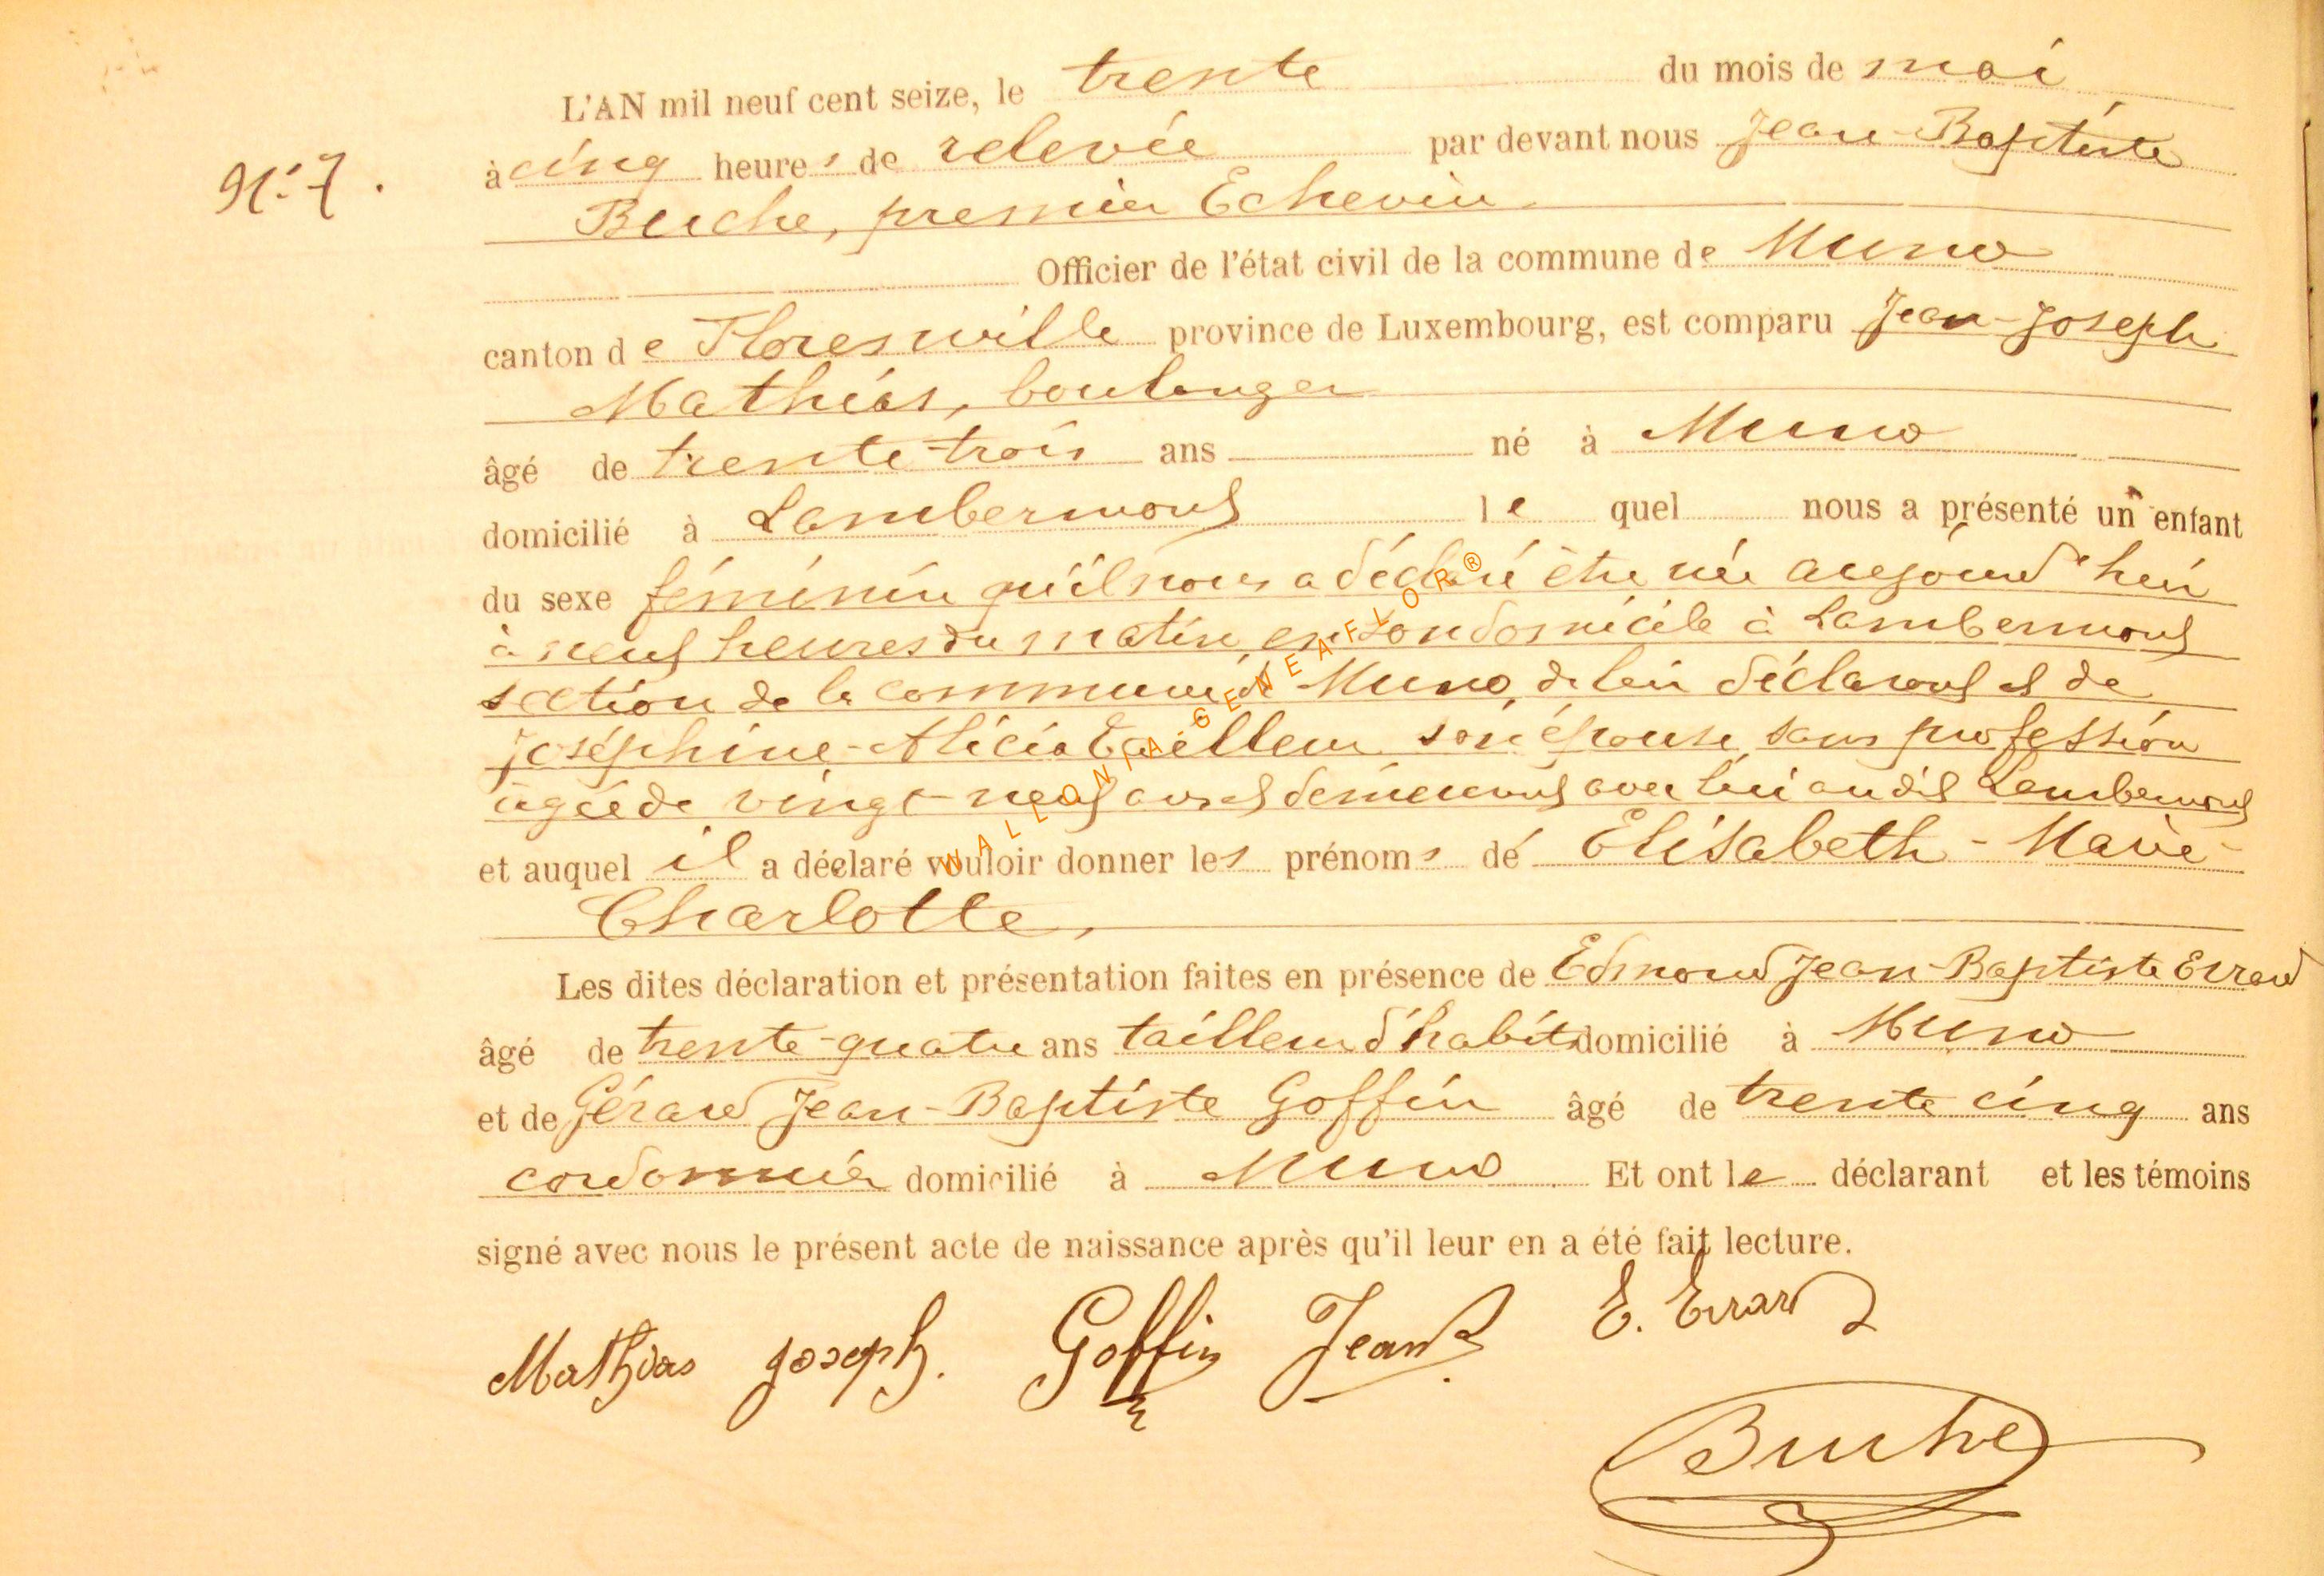 L'AN mil neuf cent seize, le trente du mois de mai
N° 7.
à cinq heures de relevée par devant nous Jean-Baptiste
Buche, premier Echevin
Officier de l'état civil de la commune de Muno
canton de Florenville province de Luxembourg, est comparu Jean-Joseph
Mathias, boulanger
âgé de trente-trois ans né à Muno
domicilié à Lambermont lequel nous a présenté un enfant
du sexe féminin qu'il nous a déclaré être née aujourd'hui
à neuf heures du matin, en son domicile à Lambermont
section de la commune de Muno, de lui déclarant et de
Joséphine-Alicia Tailleur son épouse, sans profession
âgée de vingt-neuf ans et demeurant avec lui au dit Lambermont
et auquel il a déclaré vouloir donner les prénoms de Elisabeth-Marie-
Charlotte,
Les dites déclaration et présentation faites en présence de Edmond Jean-Baptiste Errard
âgé de trente-quatre ans tailleur d'habits domicilié à Muno
et de Gérard Jean-Baptiste Goffin âgé de trente cinq ans
cordonnier domicilié à Muno. Et ont le déclarant et les témoins
signé avec nous le présent acte de naissance après qu'il leur en a été fait lecture.
Mathias Joseph. Goffin Jean B. E. Errard
Buche
WALLONIA-GENEAFLOR®